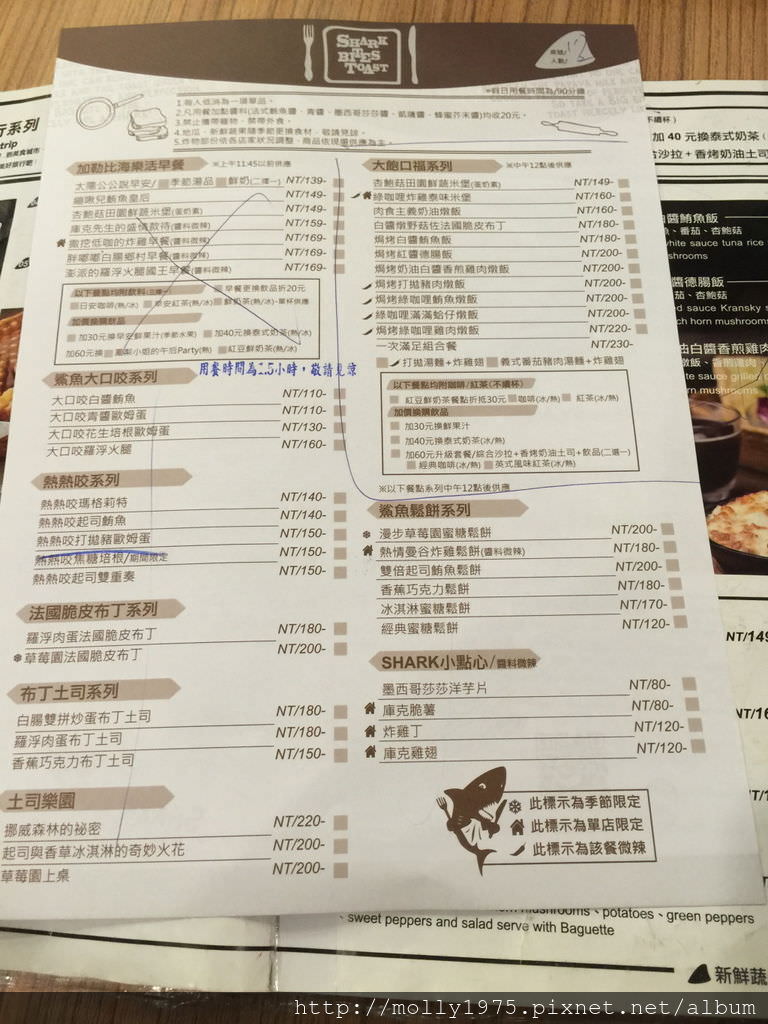 SHARK
BITES
TOAST
桌號/
人數/
12
※假日用餐時間為/90分鐘
1.每人低消為一項單品。
2.凡用餐加點醬料(法式鮪魚醬、青醬、墨西哥莎莎醬、凱薩醬、蜂蜜芥末醬)均收20元。
3.禁止攜帶寵物、禁帶外食。
4.地瓜、新鮮蔬果隨季節更換食材，敬請見諒。
5.炸物部份依各店家狀況調整，商品依現場供應為主。
加勒比海樂活早餐 ※上午11:45以前供應
太陽公公說早安/ 季節湯品 鮮奶(二擇一) NT/139-
糰啾兒鮪魚皇后 NT/149-
杏鮑菇田園鮮蔬米堡(蛋奶素) NT/149-
庫克先生的盛情款待(醬料微辣) NT/159-
撒挖低咖的炸雞早餐(醬料微辣) NT/169-
胖嘟嘟白腸鄉村早餐(醬料微辣) NT/169-
澎派的羅浮火腿國王早餐(醬料微辣) NT/169-
以下餐點均附飲料(三擇一) 早餐更換飲品折20元
日安咖啡(熱/冰) 早安紅茶(熱/冰) 鮮奶茶(熱/冰)-單杯供應
加價換購飲品
加30元換早安鮮果汁(季節水果) 加40元換泰式奶茶(熱/冰)
加60元換 鳳梨小姐的午后Party(熱) 紅豆鮮奶茶(熱/冰)
用餐時間為1.5小時，敬請見諒
鯊魚大口咬系列
大口咬白醬鮪魚 NT/110-
大口咬青醬歐姆蛋 NT/110-
大口咬花生培根歐姆蛋 NT/130-
大口咬羅浮火腿 NT/160-
熱熱咬系列
熱熱咬瑪格莉特 NT/140-
熱熱咬起司鮪魚 NT/140-
熱熱咬打拋豬歐姆蛋 NT/150-
熱熱咬焦糖培根/期間限定 NT/150-
熱熱咬起司雙重奏 NT/150-
法國脆皮布丁系列
羅浮肉蛋法國脆皮布丁 NT/180-
草莓園法國脆皮布丁 NT/200-
布丁土司系列
白腸雙拼炒蛋布丁土司 NT/180-
羅浮肉蛋布丁土司 NT/180-
香蕉巧克力布丁土司 NT/150-
土司樂園
挪威森林的祕密 NT/220-
起司與香草冰淇淋的奇妙火花 NT/200-
草莓園上桌 NT/200-
大飽口福系列 ※中午12點後供應
杏鮑菇田園鮮蔬米堡(蛋奶素) NT/149-
綠咖哩炸雞泰味米堡 NT/160-
肉食主義奶油燉飯 NT/180-
白醬燉野菇佐法國脆皮布丁 NT/180-
焗烤白醬鮪魚飯 NT/180-
焗烤紅醬德腸飯 NT/200-
焗烤奶油白醬香煎雞肉燉飯 NT/200-
焗烤打拋豬肉燉飯 NT/200-
焗烤綠咖哩鮪魚燉飯 NT/200-
綠咖哩滿滿蛤仔燉飯 NT/200-
焗烤綠咖哩雞肉燉飯 NT/220-
一次滿足組合餐 NT/230-
打拋湯麵+炸雞翅 義式番茄豬肉湯麵+炸雞翅
以下餐點均附咖啡/紅茶(不續杯)
紅豆鮮奶茶餐點折抵30元 咖啡(冰/熱) 紅茶(冰/熱)
加價換購飲品
加30元換鮮果汁
加40元換泰式奶茶(冰/熱)
加60元升級套餐/綜合沙拉+香烤奶油土司+飲品(二選一)
經典咖啡(冰/熱) 英式風味紅茶(冰/熱)
※以下餐點系列中午12點後供應
鯊魚鬆餅系列
漫步草莓園蜜糖鬆餅 NT/200-
熱情曼谷炸雞鬆餅(醬料微辣) NT/180-
雙倍起司鮪魚鬆餅 NT/200-
香蕉巧克力鬆餅 NT/180-
冰淇淋蜜糖鬆餅 NT/170-
經典蜜糖鬆餅 NT/120-
SHARK小點心/醬料微辣
墨西哥莎莎洋芋片 NT/80-
庫克脆薯 NT/80-
炸雞丁 NT/120-
庫克雞翅 NT/120-
此標示為季節限定
此標示為單店限定
此標示為該餐微辣
行系列
trip
不續杯)
加 40 元換泰式奶茶(
合沙拉+香烤奶油土司
醬鮪魚飯
魚、番茄、杏鮑菇
white sauce tuna rice
mushrooms
醬德腸飯
、杏鮑菇
ed sauce Kransky s
ch horn mushrooms
油白醬香煎雞肉燉
NT/149
NT/16
horn mushrooms、potatoes、green peppers
、sweet peppers and salad serve with Baguette
新鮮蔬
http://molly1975.pixnet.net/album